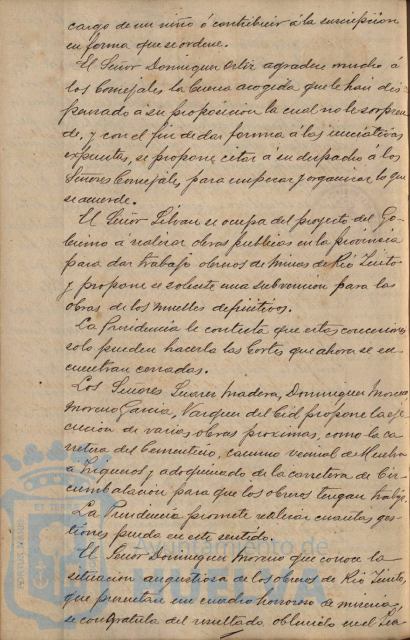 cargo de un niño ó contribuir á la suscripción
en forma que se ordene.
El Señor Dominguez Ortiz agradece mucho á
los Concejales la buena acogida que le han dis-
pensado á su proposición la cual no le sorpren-
de, y con el fin de dar forma á las iniciativas
expuestas, se propone citar á su despacho á los
Señores Concejales, para empezar y organizar lo que
se acuerde.
El Señor se ocupa del proyecto del Go-
bierno á realizar obras públicas en la provincia
para dar trabajo obreros de minas de Rio Tinto
y propone se solicite una subvención para las
obras de los muelles definitivos.
La Presidencia le contesta que estas concesiones
solo pueden hacerla las Cortes que ahora se en-
cuentran cerradas.
Los Señores Suarez Madera, Dominguez Moreno,
Moreno Garcia, Vazquez del Cid propone la eje-
cución de varias obras proximas, como la ca-
rretera del Cementerio, camino vecinal de Huelva
a Trigueros y adoquinado de la carretera de Cir-
cunvalación para que los obreros tengan trabajo.
La Presidencia promete realizar cuantas ges-
tiones pueda en este sentido.
El Señor Dominguez Moreno que conoce la
situación angustiosa de los obreros de Rio Tinto,
que presentan un cuadro horroroso de miseria,
se congratula del resultado obtenido en el